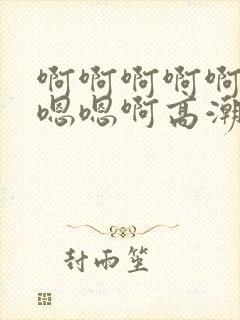 啊啊啊啊啊
嗯嗯啊高潮
封雨笙